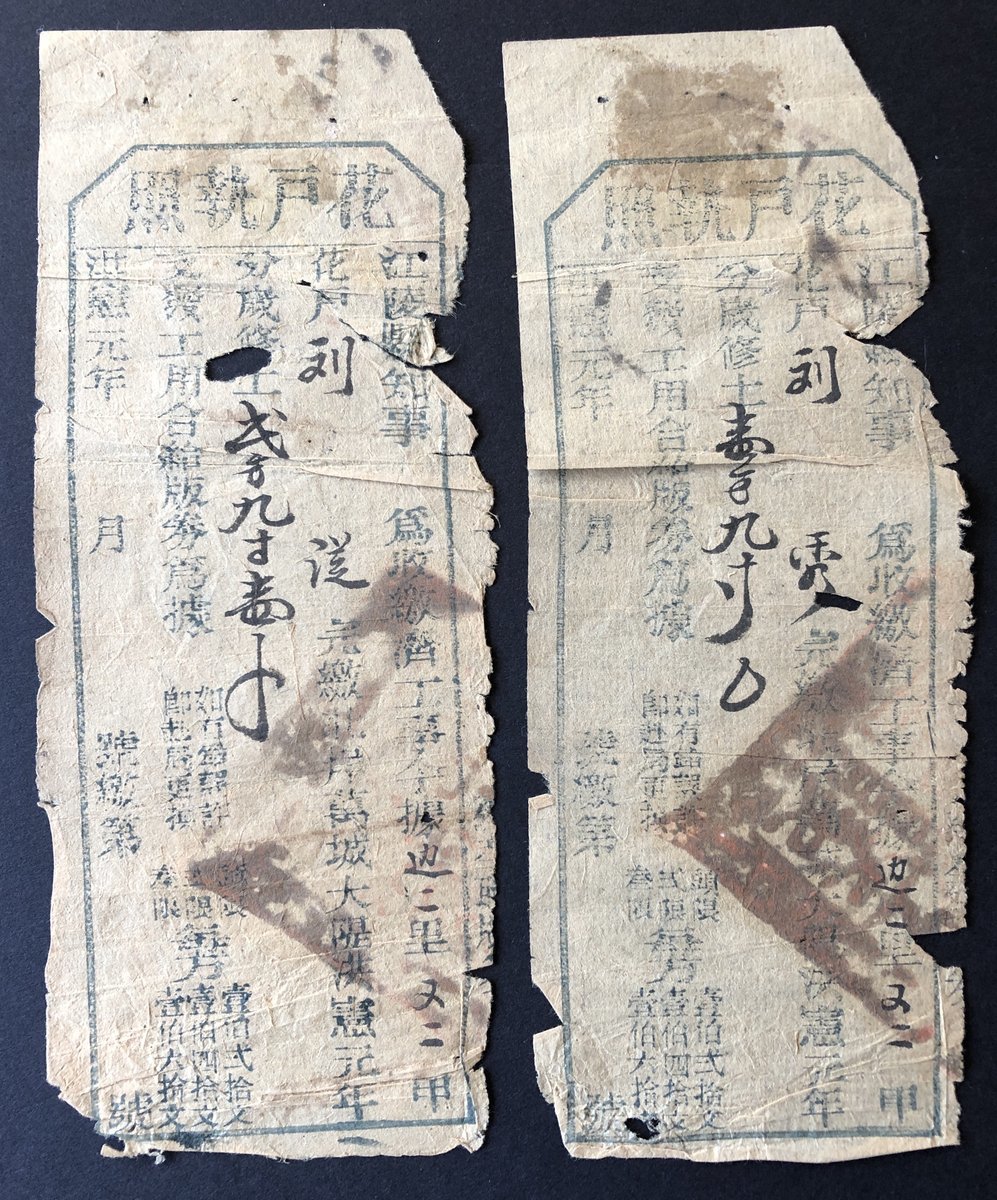 花戶執照
江陵縣知事 爲收繳濟工事今據边二里又二甲
花戶刘 從 完繳北岸萬城大隄洪憲元年
分歲修土 弍方九寸壹
支發工用合給版券爲據 如有錯舛許 卽赴局更換 頭限 弍限 叁限 每方 壹伯弍拾文 壹伯四拾文 壹伯六拾文
洪憲元年 月 號繳第 號
花戶執照
江陵縣知事 爲收繳濟工事今據边二里又二甲
花戶刘 完繳北岸萬城大隄洪憲元年
分歲修土 壹方九寸
支發工用合給版券爲據 如有錯舛許 卽赴局更換 頭限 弍限 叁限 每方 壹伯弍拾文 壹伯四拾文 壹伯六拾文
洪憲元年 月 號繳第 號